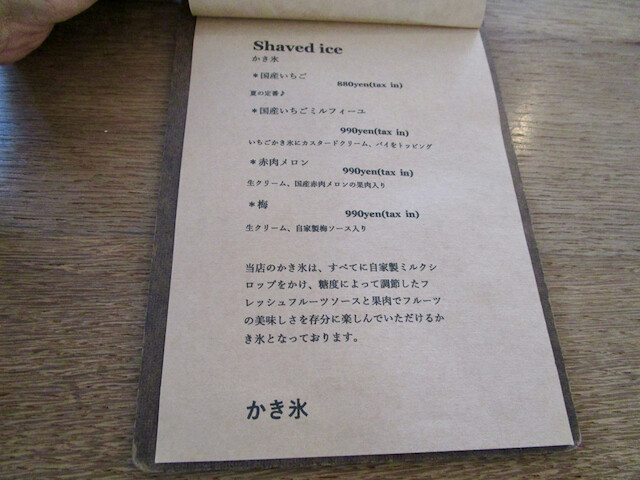 Shaved ice
かき氷
*国産いちご
880yen(tax in)
夏の定番♪
*国産いちごミルフィーユ
990yen(tax in)
いちごかき氷にカスタードクリーム、パイをトッピング
*赤肉メロン
990yen(tax in)
生クリーム、国産赤肉メロンの果肉入り
*梅
990yen(tax in)
生クリーム、自家製梅ソース入り
当店のかき氷は、すべてに自家製ミルクシ
ロップをかけ、糖度によって調節したフ
レッシュフルーツソースと果肉でフルーツ
の美味しさを存分に楽しんでいただけるか
き氷となっております。
かき氷